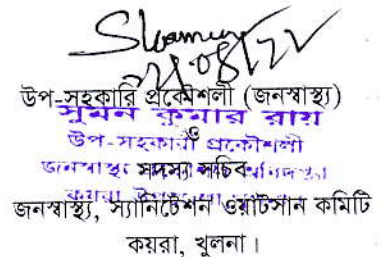 21/08/22
উপ-সহকারি প্রকৌশলী (জনস্বাস্থ্য)
সুমন কুমার রায়
ও
উপ-সহকারী প্রকৌশলী
জনস্বাস্থ্য
সদস্য সচিব
জনস্বাস্থ্য, স্যানিটেশন ওয়াটসান কমিটি
কয়রা, খুলনা।